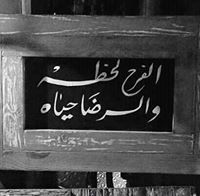 الفرح لحظه
والرضا حياه